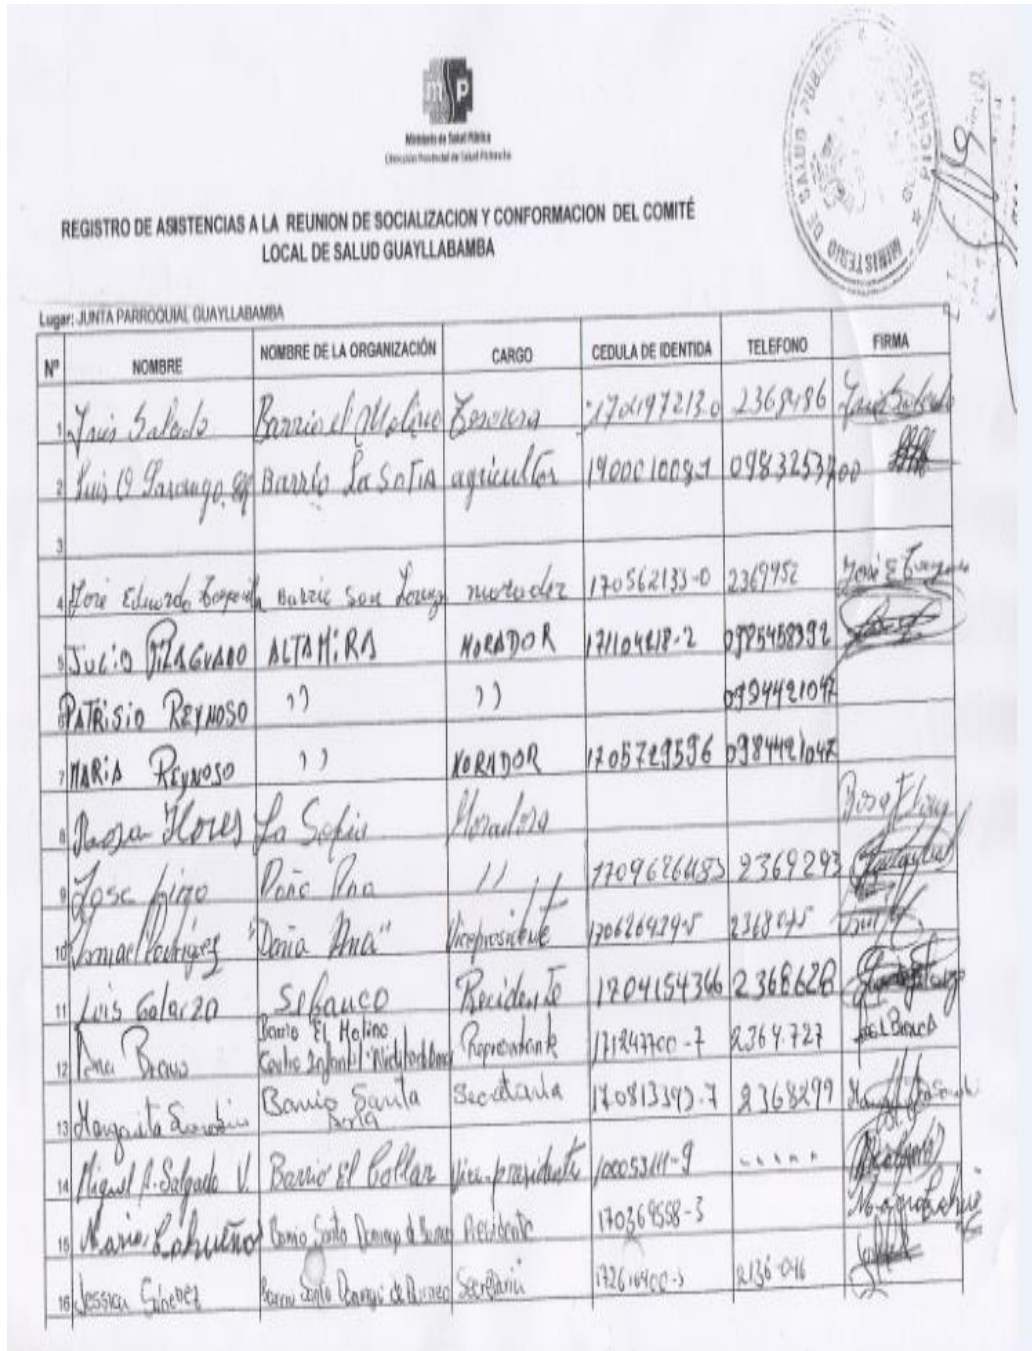 msp
Ministerio de Salud Pública
Dirección Provincial de Salud Pichincha
MINISTERIO DE SALUD PUBLICA
PICHINCHA
REGISTRO DE ASISTENCIAS A LA REUNION DE SOCIALIZACION Y CONFORMACION DEL COMITÉ
LOCAL DE SALUD GUAYLLABAMBA
Lugar: JUNTA PARROQUIAL GUAYLLABAMBA
Nº NOMBRE NOMBRE DE LA ORGANIZACIÓN CARGO CEDULA DE IDENTIDA TELEFONO FIRMA
1 Salcedo Barrio el Molino Tesorera 170197213-0 2368486
2 Luis O Barrio La Sofia agricultor 0983253700
3
4 José Eduardo Barrio San morador 170562133-0 2369952 José E
5 JULIO PIZAGUANO ALTAMIRA MORADOR 171104218-2 0985458392
6 PATRISIO REYNOSO )) )) 0984421047
7 MARIA REYNOSO )) MORADOR 1705729596 0984421047
8 Rosa Flores La Sofia Moradora Rosa Flores
9 Jose Doña Ana // 2369293
10 Ismael Rodriguez "Doña Ana" Vicepresidente
11 Luis Galarza Presidente 1704154366 2368628
12 Ana Bravo Barrio El Molino
Centro Infantil Representante 171247700-7 2364.727
13 Margarita Barrio Santa
Secretaria 170813393-7 2368299
14 Miguel A. Salgado V. Barrio El Collar Vicepresidente 100053111-9 .....
15 Mario Barrio Santo Domingo de Presidente 170369558-3
16 Jessica Barrio Santo Domingo de Secretaria 2136-046